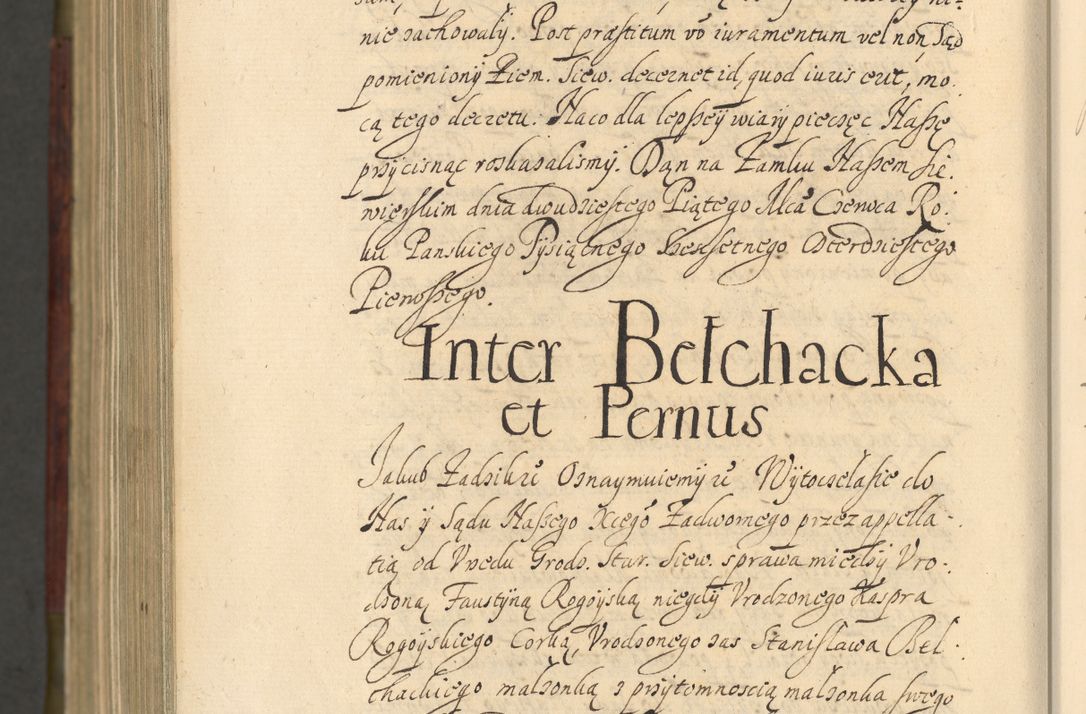 nie zachowały. Post præstitum vō iuramentum vel non, Sąd
pomieniony Ziem. Siew. decernet id, quod iuris erit, mo-
cą tego decretu. Na co dla lepszey wiary pieczęc Naszę
przycisnąc roskazalismy. Dan na Zamku Naszem Sie-
wierskim dnia dwudziestego Piątego Mca Czerwca Ro-
ku Panskiego Tysiącnego Szescsetnego Czterdziestego
Pierwszego.
Inter Bełchacka
et Pernus
Jakub Zadzikze Oznaymuiemy ze Wytoczelasie do
Nas y Sądu Naszego Xcego Zadwornego przez appella-
tią od Vrzedu Grodz. Star. Siew. sprawa miedzy Vro-
dzoną Faustyną Rogoyską niegdy Vrodzonego Kaspra
Rogoyskiego Corką, Vrodzonego zas Stanisława Beł-
chackiego małzonką z przytomnoscią małzonka swego